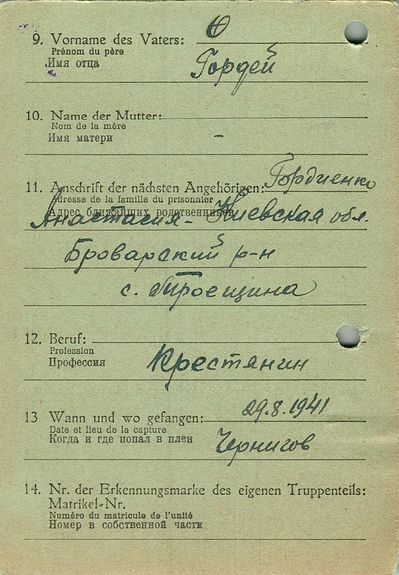 9. Vorname des Vaters:
Prénom du père
Имя отца
Гордей
10. Name der Mutter:
Nom de la mère
Имя матери
-
11. Anschrift der nächsten Angehörigen: Гордиенко
Adresse de la famille du prisonnier
Адрес ближайших родственников
Анастасия - Киевская обл.
Броварский р-н
с. Троещина
12. Beruf:
Profession
Профессия
Крестянин
13 Wann und wo gefangen: 29.8.1941
Date et lieu de la capture
Когда и где попал в плен
Чернигов
14. Nr. der Erkennungsmarke des eigenen Truppenteils:
Matrikel-Nr.
Numéro du matricule de l'unité
Номер в собственной части